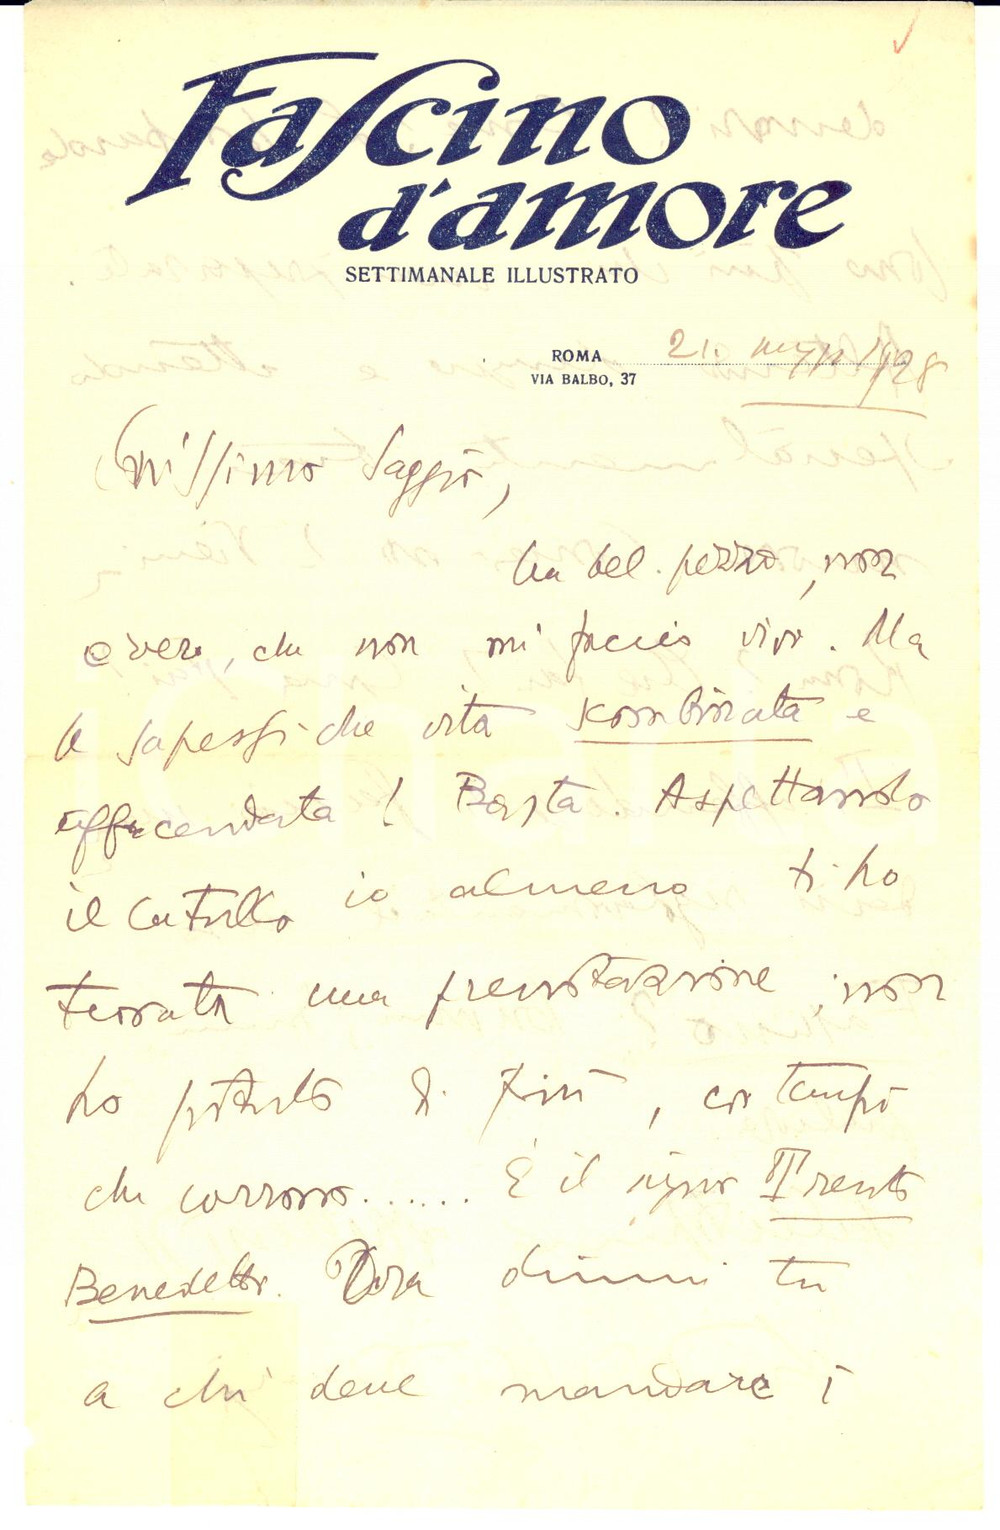 Fascino
d'amore
SETTIMANALE ILLUSTRATO
ROMA 21. 1928
VIA BALBO, 37
Saggio,
un bel pezzo, non
è vero, che non mi faccio vivo. Ma
se sapessi che vita scombinata e
affacendata! Basta. Aspettando
il Catullo io almeno ti ho
trovato una prenotazione, non
ho potuto di più, coi tempi
che corrono......  È il signor Trento
Benedetto. Ora dimmi tu
a chi deve mandare i